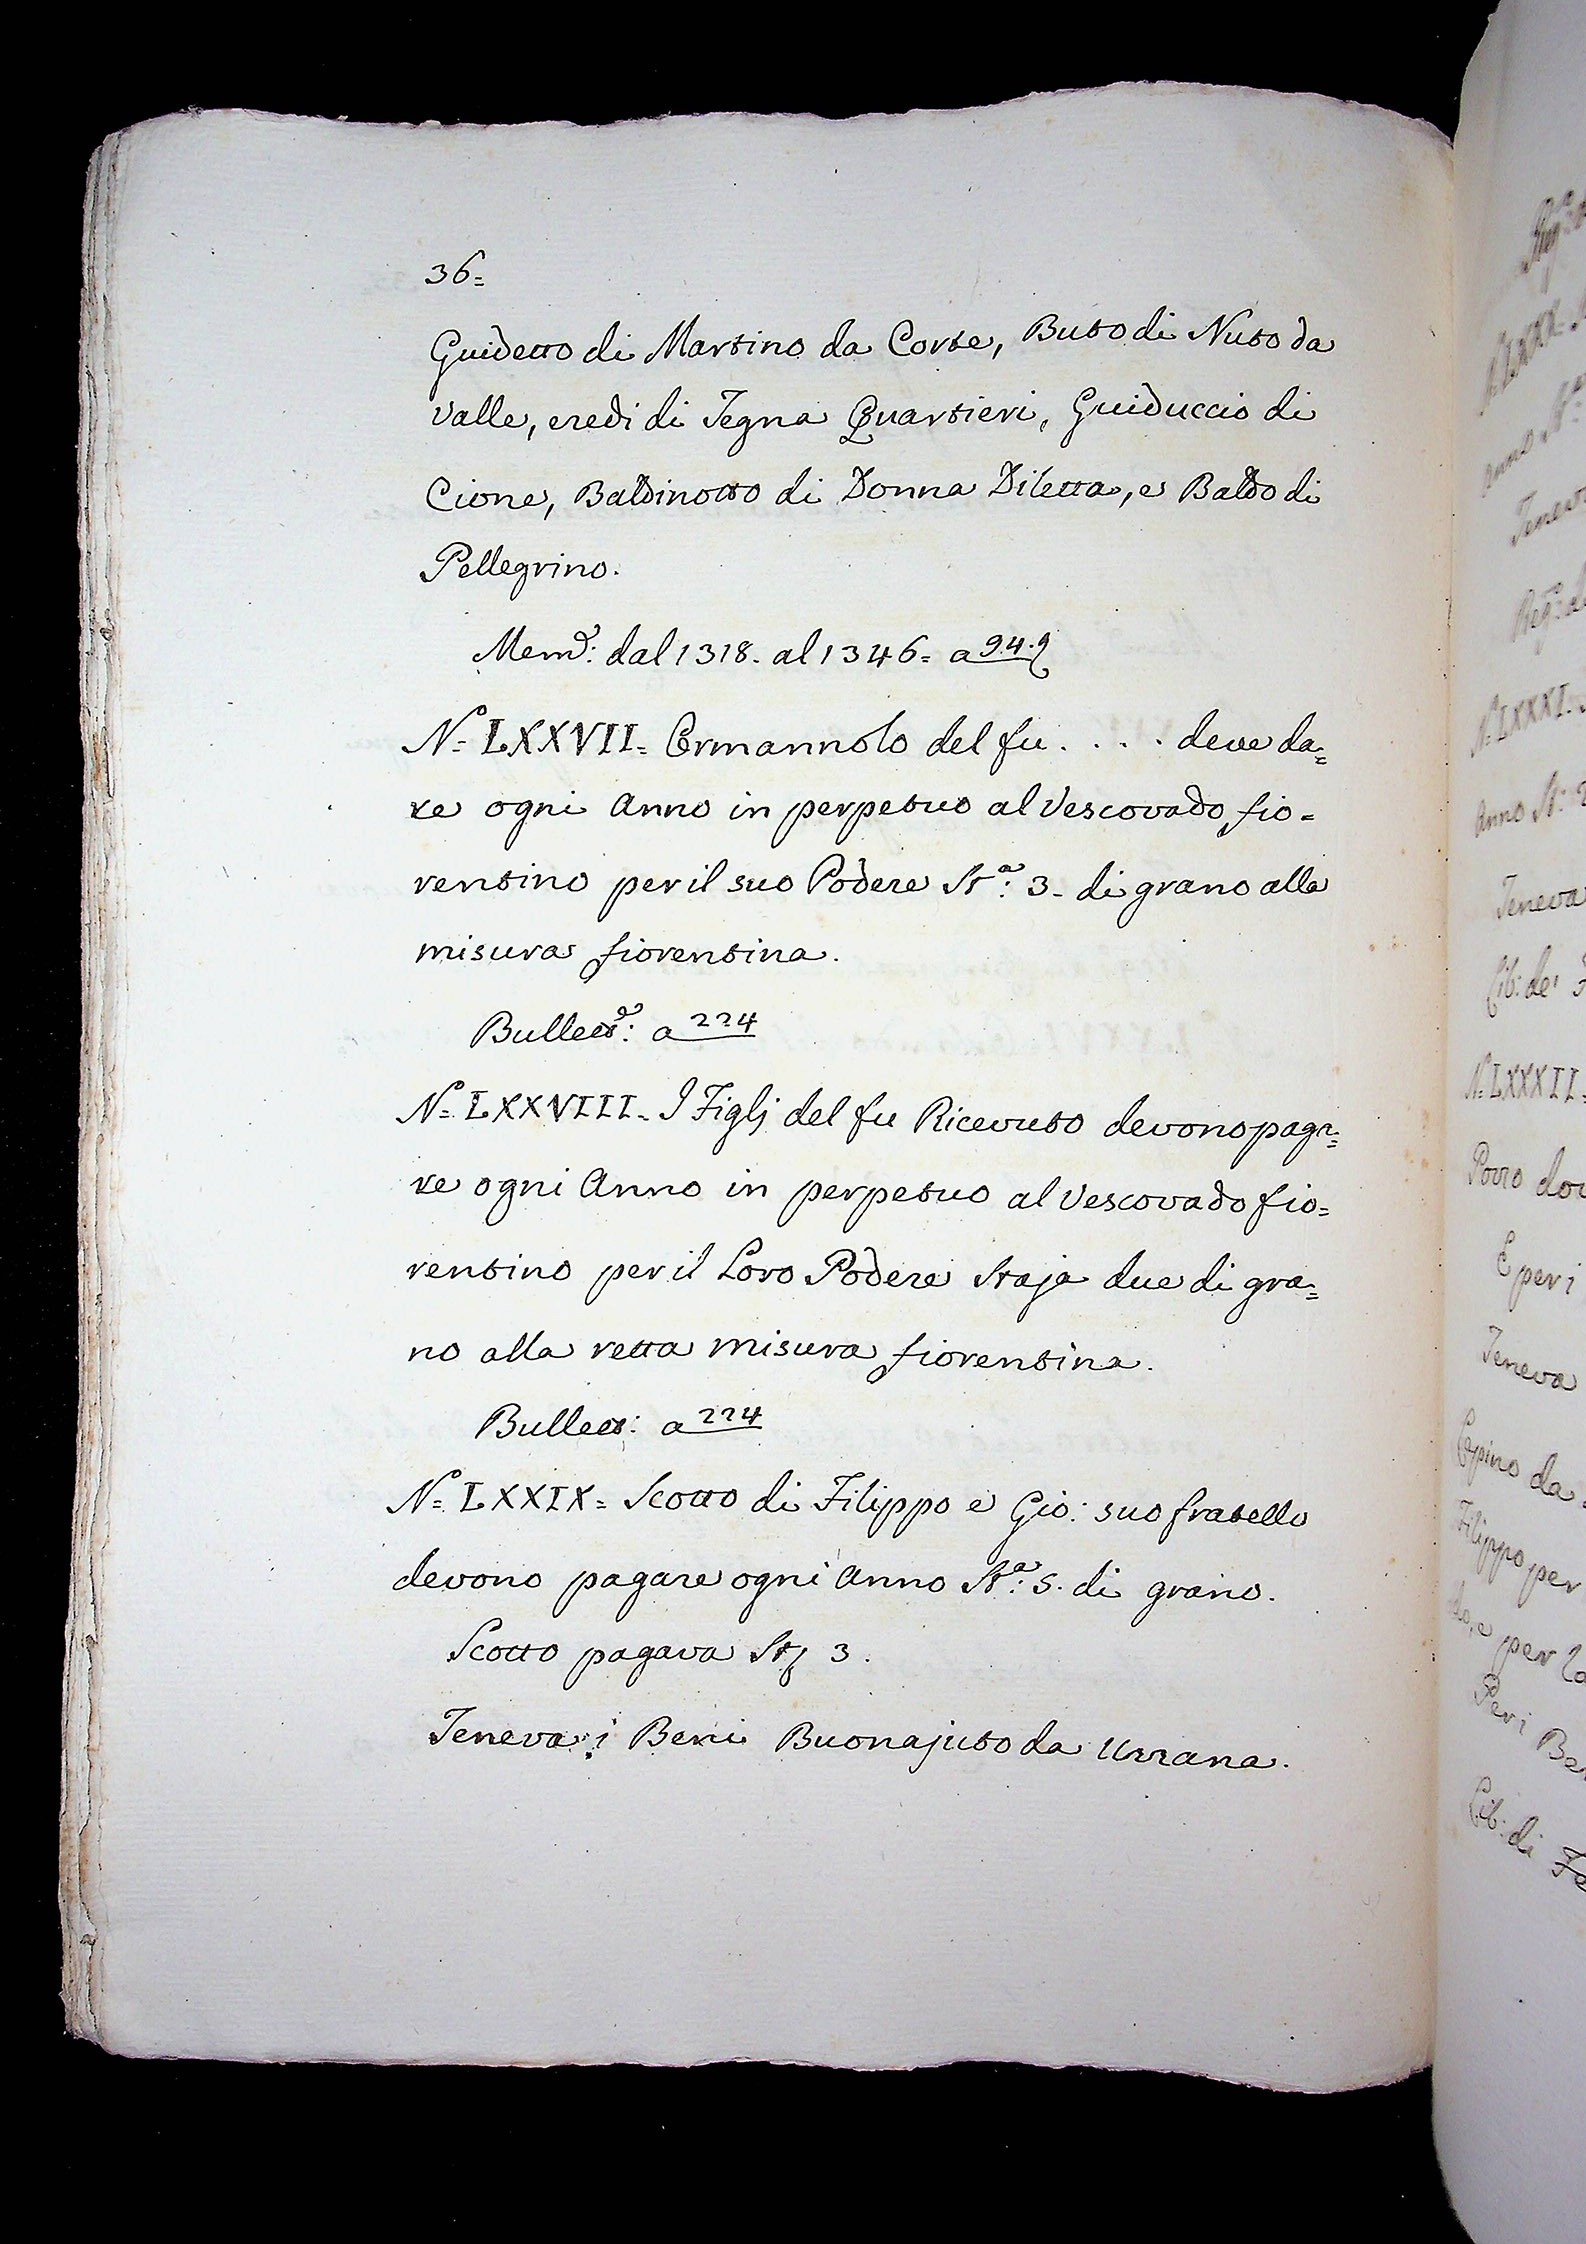 36=
Guidetto di Martino da Corte, Buto di Nuto da
Valle, eredi di Tegna Quartieri, Guiduccio di
Cione, Baldinotto di Donna Diletta, e Baldo di
Pellegrino.
Mem.e: dal 1318. al 1346= a 94.
N.o= LXXVII= Ermannolo del fu . . . . deve da=
re ogni Anno in perpetuo al Vescovado fio=
rentino per il suo Podere St.a: 3- di grano alla
misura fiorentina.
Bullett.e: a 224
N.o= LXXVIII= I Figlj del fu Ricevuto devono paga=
re ogni Anno in perpetuo al Vescovado fio=
rentino per il Loro Podere Staja due di gra=
no alla retta misura fiorentina.
Bullett: a 224
N.o= LXXIX= Scotto di Filippo e Gio: suo fratello
devono pagare ogni Anno St.a: 5. di grano.
Scotto pagava Stj 3.
Teneva i Beni Buonajuto da Urrana.
N.o LXXXI=
Anno St:
Teneva
Lib: de'
N.o LXXXII=
Porro
E per i
Teneva
da
Filippo per
e per la
Per i
Lib: di